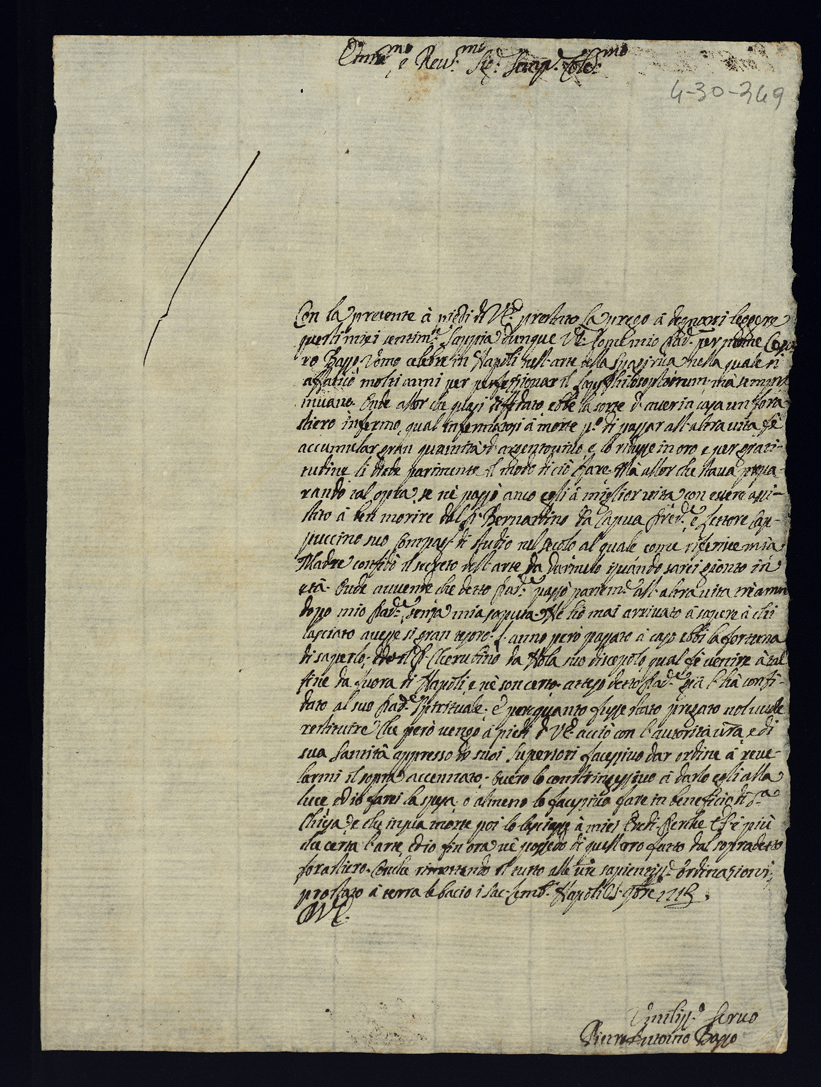 Emin.mo e Rev.mo Sig.r Colmo
4-30-349
Con la presente à piedi di V.E. prostrato la prego à degnarsi leggere
questi miei sentim.ti Sappia dunque V.E. mio Pad.e per nome
ro Basso Vomo celebre in Napoli nell'arte della Spagiria nella quale si
affaticò molti anni per perfettionar il Philosophorum mà sempre
invano. Onde allor che quasi diffidato ebbe la sorte d'aver in casa un fora
stiero infermo, qual infermatosi à morte p.a di passar all'altra vita fè
accumular gran quantità d'argentovivo e lo ridusse in oro e per grati-
tudine li diede parimente il modo di ciò fare. Mà allor che stava prepa-
rando tal opera se nè passò anco egli à miglior vita con essere assi-
stito à ben morire dal P. Bernardino da Capua Pred.e e Lettore Cap-
puccino suo Compag.o di studio nel secolo al quale come riferisce mia
Madre confidò il secreto dell'arte da darmelo quando sarei gionto in
età. Onde avvenne che detto Pad.e passò parim.te all'altra vita
dopo mio Pad.e senza mia saputa. Nè hò mai arrivato à sapere à chi
lasciato avesse si gran tesoro. L'anno però passato à caso ebbi la fortuna
di saperlo. il P. Cherubino da Nola suo discepolo qual fè venire à tal
fine da fuora di Napoli e nè son certo detto Pad.e già l'hà confi-
dato al suo Pad.e Spirituale. e per quanto fusse stato pregato nol vuole
restituire. Che però vengo à piedi di V.E. acciò con l'autorità vra e di
sua Santità appresso di suoi Superiori facessivo dar ordine à reve-
larmi il sopra accennato. overo lo constringessivo à darlo egli alla
luce, ed io farei la spesa, o almeno lo facessivo fare in beneficio di S.a
Chiesa, e che in sua morte poi lo lasciasse à miei Eredi. Perche è più
che certa l'arte, ed io fin'ora nè possedo di quest'oro fatto dal sopradetto
forastiero. Onde rimettendo il tutto alle vre sapientiss.e ordinazioni,
prostrato à terra le bacio i sac. Lemb.i Napoli 9bre 1715.
D.V.E.
Umiliss.o Servo
Pietr'Antonio Basso